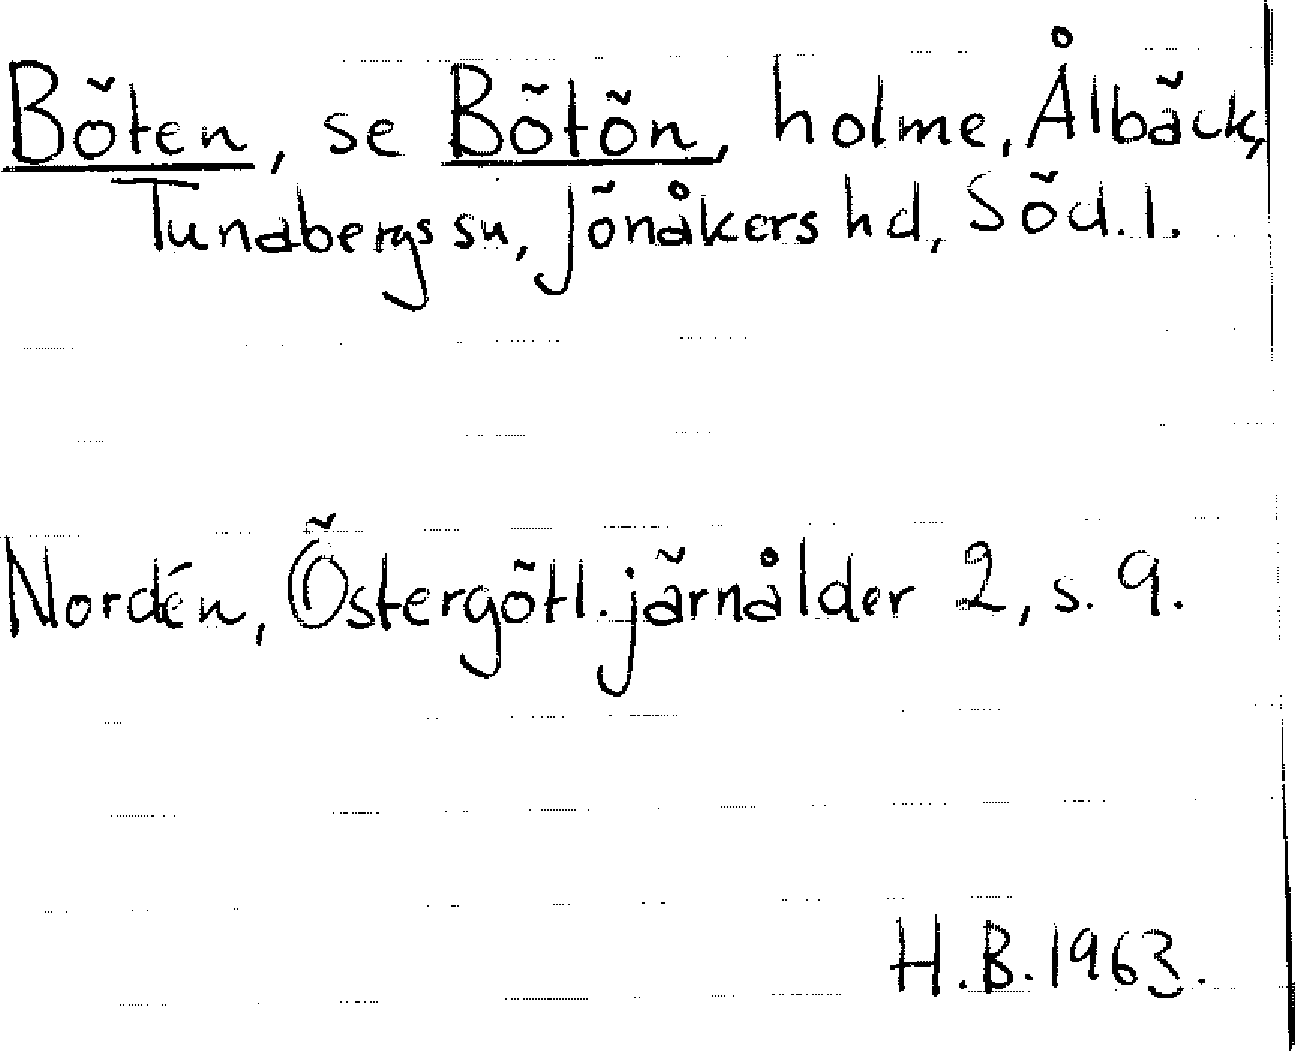 Böten, se Bötön, holme, Ålbäck,
Tunabergs sn, Jönåkers hd, Söd. l.
Nordén, Östergötl. järnålder 2, s. 9.
H.B. 1963.